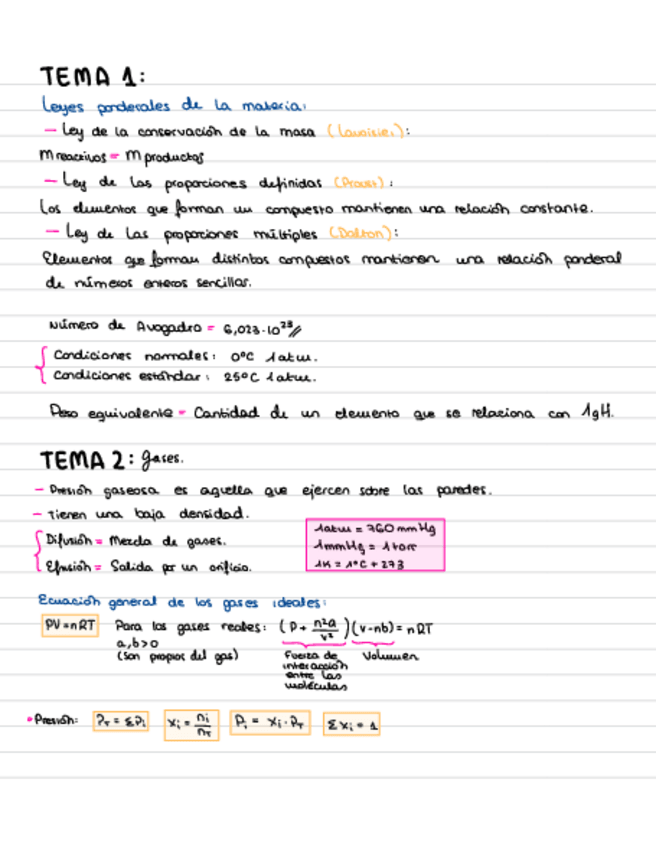 TEMA 1:
Leyes ponderales de la materia:
— Ley de la conservación de la masa (Lavoisier):
m reactivos = m productos
— Ley de las proporciones definidas (Proust):
Los elementos que forman un compuesto mantienen una relación constante.
— Ley de las proporciones múltiples (Dalton):
Elementos que forman distintos compuestos mantienen una relación ponderal
de números enteros sencillos.
Número de Avogadro = 6,023·10²³//
Condiciones normales: 0ºC 1atm.
Condiciones estándar: 25ºC 1atm.
Peso equivalente = Cantidad de un elemento que se relaciona con 1gH.
TEMA 2: gases.
— Presión gaseosa es aquella que ejercen sobre las paredes.
— Tienen una baja densidad.
Difusión = Mezcla de gases.
Efusión = Salida por un orificio.
1atm = 760 mmHg
1mmHg = 1torr
1K = 1ºC + 273
Ecuación general de los gases ideales:
PV=nRT Para los gases reales: (P + n²a/v²)(v-nb) = nRT
a,b>0
(son propios del gas)
Fuerza de interacción entre las moléculas
Volumen
• Presión: P_T = ΣP_i X_i = n_i/n_T P_i = X_i · P_T ΣX_i = 1